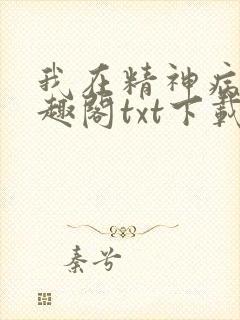 我在精神病
趣阁txt下载
秦兮